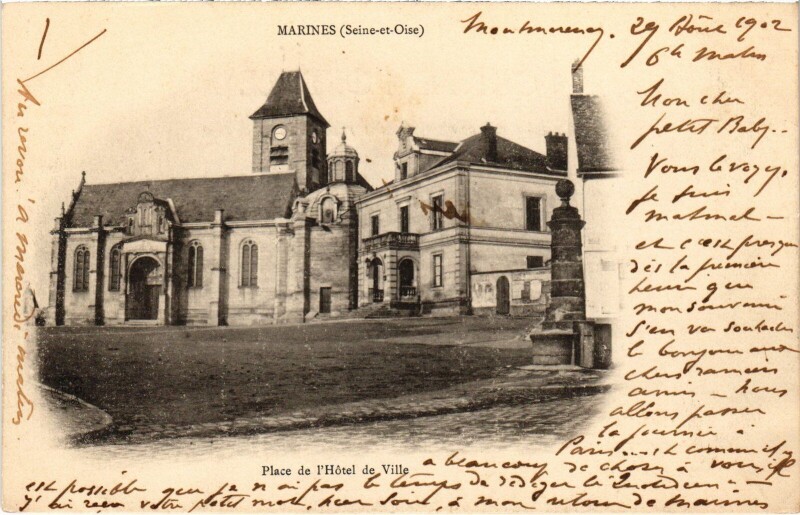 MARINES (Seine-et-Oise)
Montmorency. 29 Août 1902
6h Matin
Mon cher
petit Baby
Vous le voyez,
je suis
matinal -
et c'est presque
dès la première
heure que
mon souvenir
s'en va souhaiter
le bonjour aux
chers ramiers
amis - Nous
allons passer
la journée à
Paris et comme il y
a beaucoup de choses à voir il
est possible que je n'ai pas le temps de rédiger le
j'ai reçu votre petit mot, hier soir, à mon retour de Marines
Au revoir à mercredi matin
Place de l'Hôtel de Ville